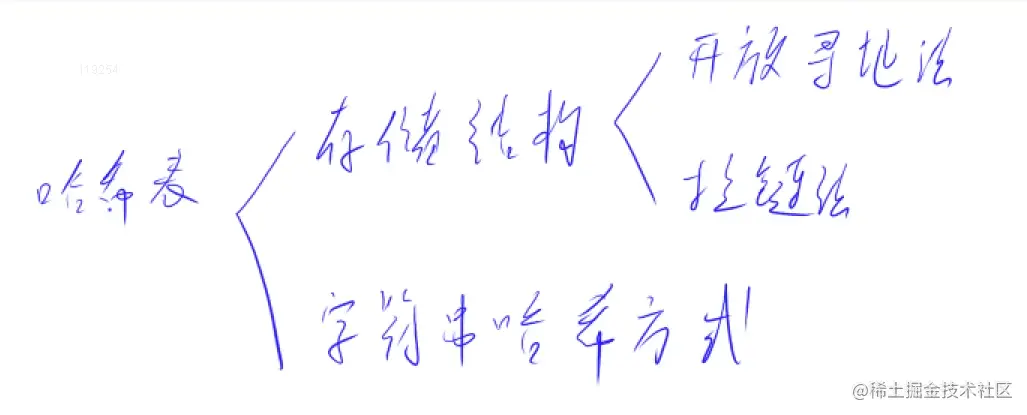 开放寻址法
存储结构
拉链法
哈希表
字符串哈希方式
@稀土掘金技术社区